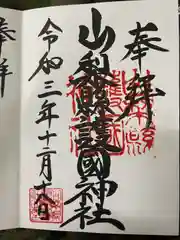 奉拝
山梨縣護國神社
令和三年十二月
奉拝